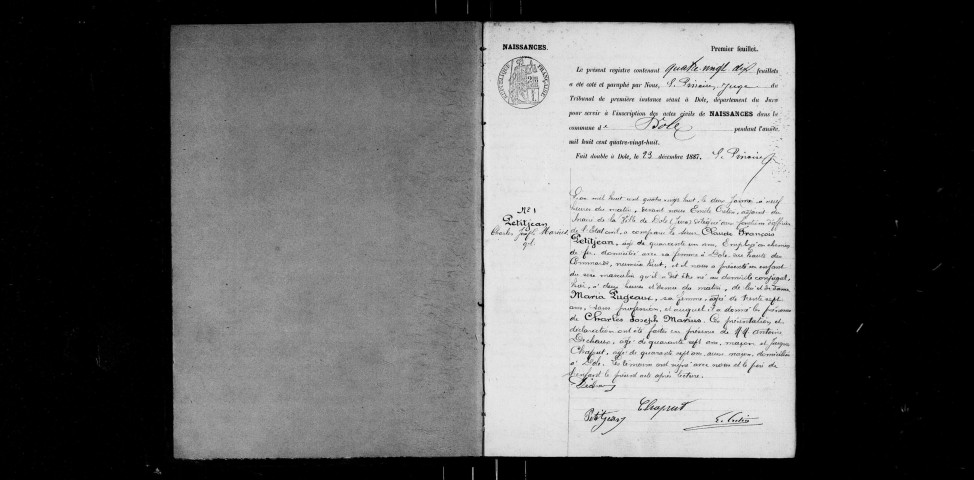 NAISSANCES.
Premier feuillet.
Le présent registre contenant quatre vingt dix feuillets
a été coté et paraphé par Nous, Juge du
Tribunal de première instance séant à Dole, département du Jura
pour servir à l'inscription des actes civils de NAISSANCES dans la
commune de Dole pendant l'année
mil huit cent quatre-vingt-huit.
Fait double à Dole, le 23 décembre 1887.
RÉPUBLIQUE FRANÇAISE
No 1
Petitjean
Charles Joseph Marius
L'an mil huit cent quatre vingt huit, le deux Janvier à neuf
heures du matin, devant nous Emile adjoint du
Maire de la Ville de Dole (Jura) délégué aux fonctions d'officier
de l'Etat civil, a comparu le sieur Claude François
Petitjean, âgé de quarante un ans, Employé au chemin
de fer, domicilié avec sa femme à Dole, rue haute des
Commards, numéro huit, et il nous a présenté un enfant
du sexe masculin qu'il a dit être né au domicile conjugal,
hier, à deux heures et demie du matin, de lui et de Dame
Maria Pugeaux, sa femme, âgée de trente sept
ans, sans profession, et auquel il a donné les prénoms
de Charles Joseph Marius. Ces présentation et
déclaration ont été faites en présence de MM. Antoine
Dechaux, âgé de quarante sept ans, maçon et Jacques
Chaput, âgé de quarante sept ans, aussi maçon, domiciliés
à Dole. Les témoins ont signé avec nous et le père de
l'enfant le présent acte après lecture.
Chaput
Petitjean